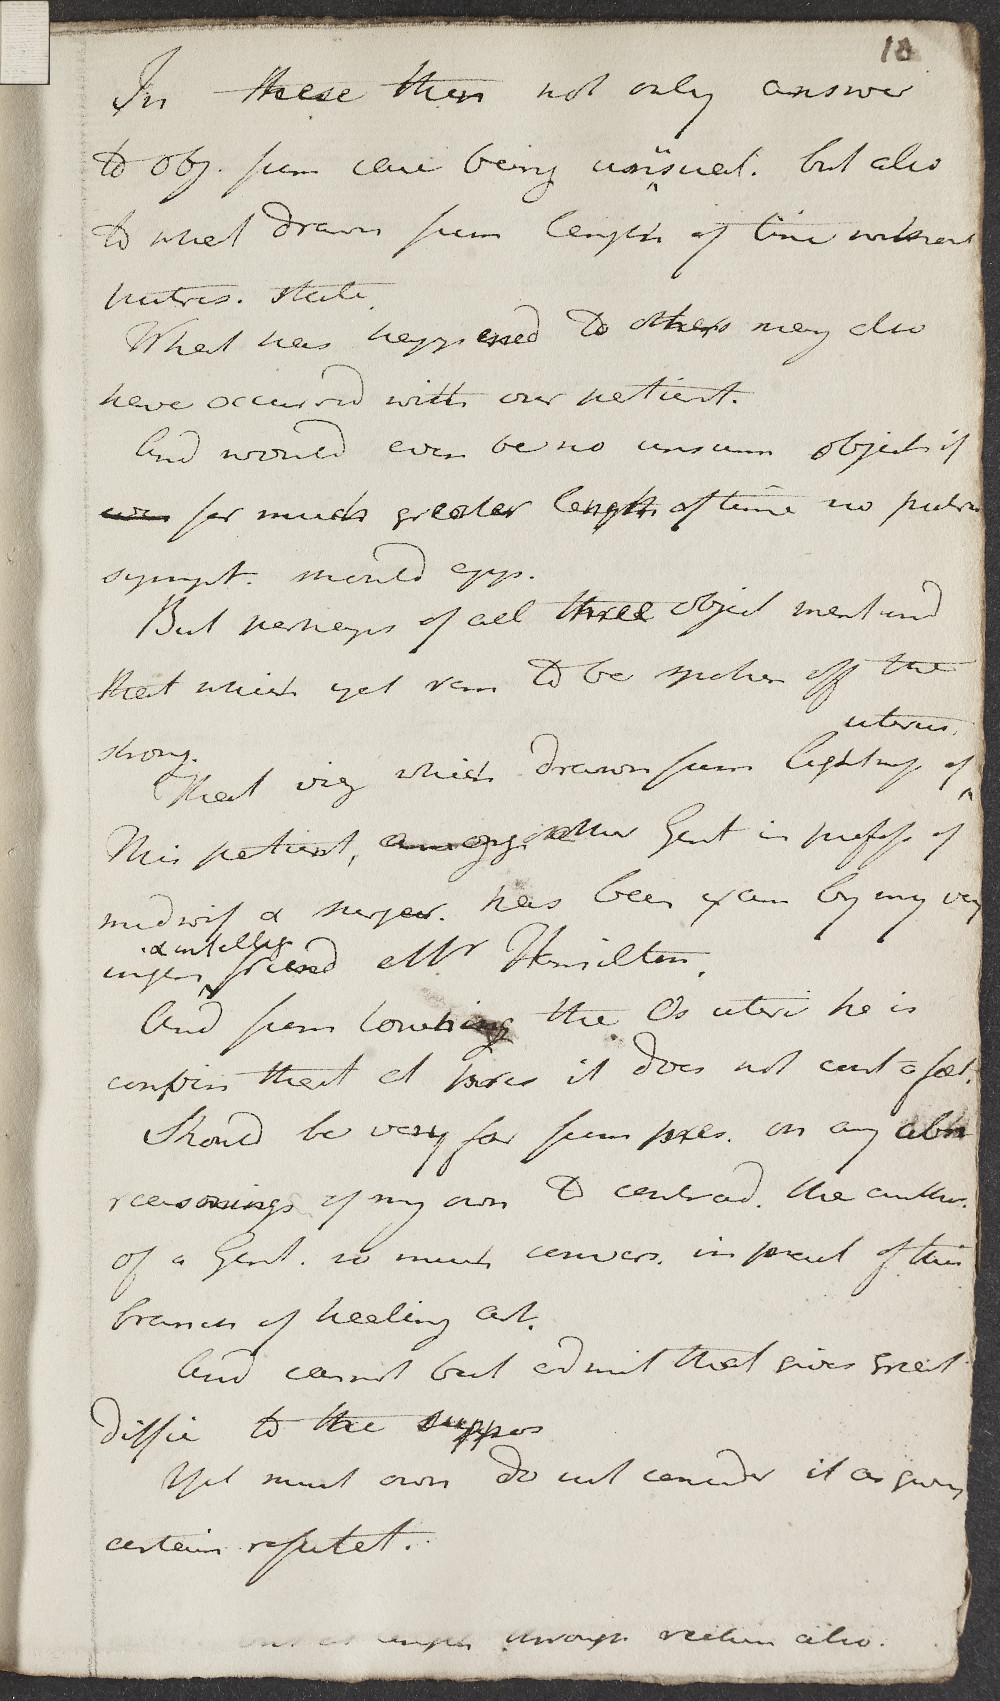 18
In these then not only answer
to obj. from case being unusual. but also
to what drawn from length of time without
putres. state.
What has happened to others may also
have occurred with our patient.
And would even be no unsurm object if
even for much greater length of time no putrid
sympt. should app.
But perhaps of all three object mentioned
that which yet rem to be spoken off the
strong.
uterus.
That viz which drawn from lightness of
This patient, among other Gent in profess of
midwif & surger. has been exam by my very
& intellig
ingen friend Mr Hamilton.
And from touching the Os uteri he is
confin that at pres it does not cont a foet.
Should be very far from pres. on any abst
reasonings of my own to contrad. the author.
of a Gent. so much convers. in pract of this
branch of healing art.
And cannot but admit that gives great
diffic to the suppos
Yet must own do not consider it as giving
certain refutat.
length through rectum also.